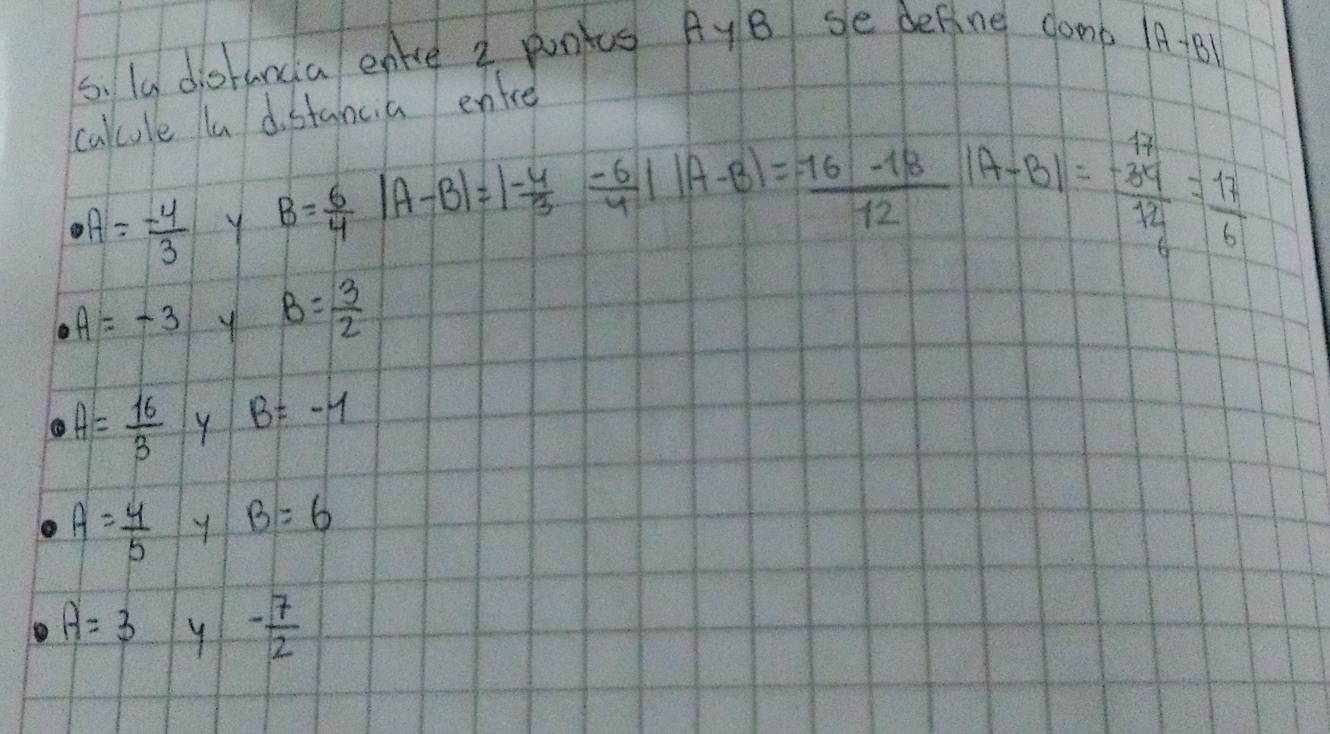 Si la distancia entre 2 puntos A y B se define como |A-B|
calcule la distancia entre
• A = -4/3 y B = 6/4 |A-B| = |-4/3 -6/4| |A-B| = -16 -18/12 |A-B| = 17 -34/12 6 = 17/6
• A = -3 y B = 3/2
• A = 16/3 y B = -1
• A = 4/5 y B = 6
• A = 3 y -7/2